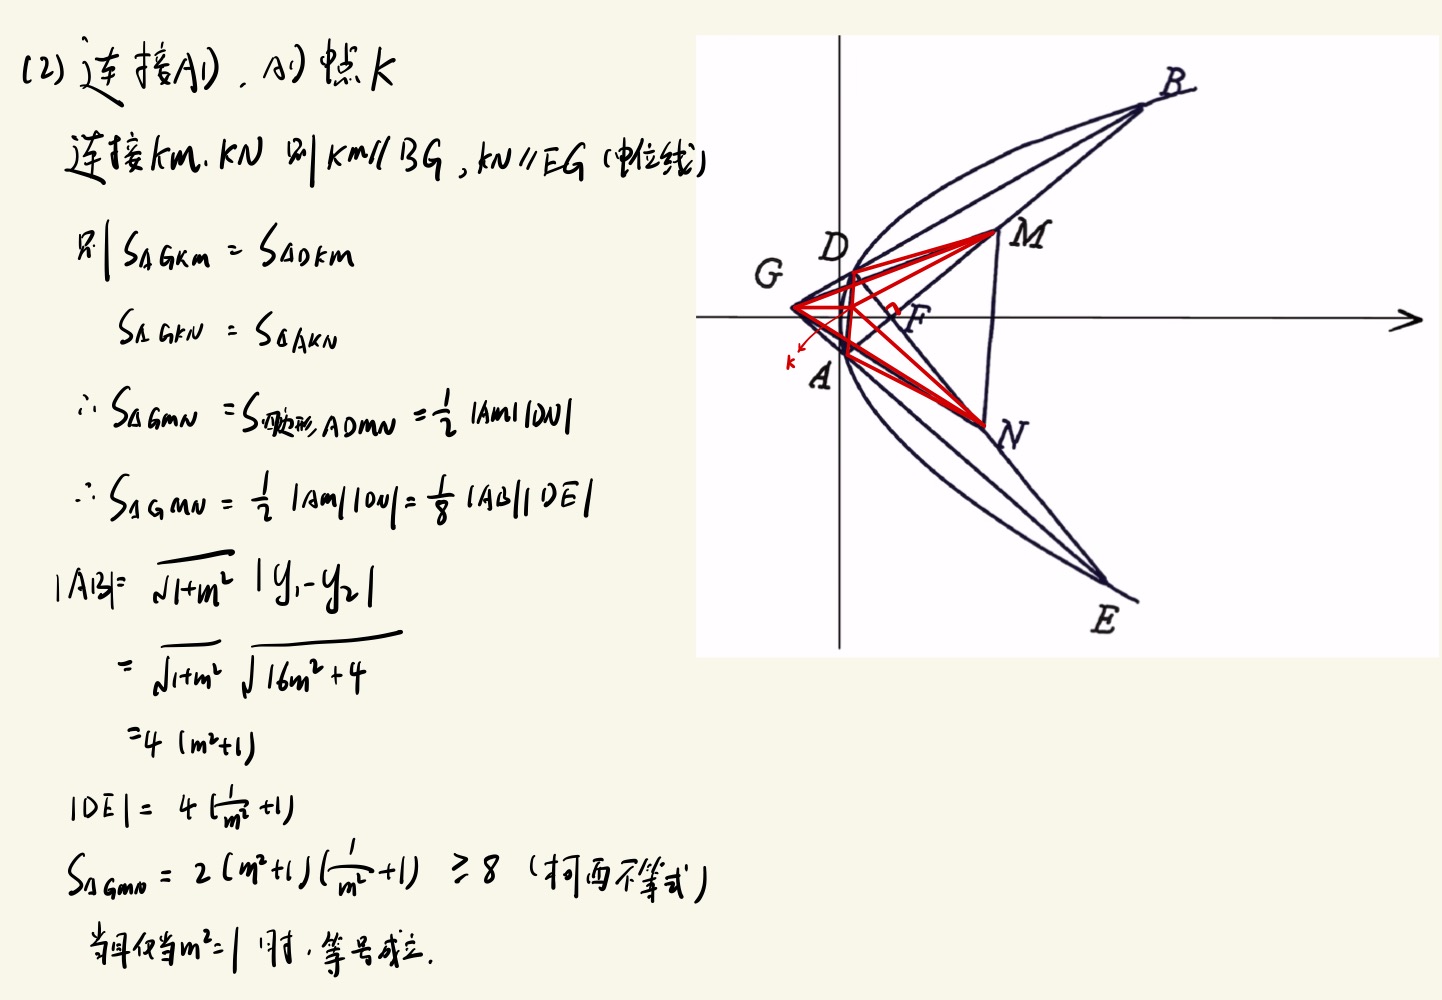 (2) 连接AD, AD中点K
连接KM, KN 则 KM∥BG, KN∥EG (中位线)
则 S△GKM = S△DKM
S△GKN = S△AKN
∴ S△GMN = S四边形ADMN = 1/2 |AM||DN|
∴ S△GMN = 1/2 |AM||DN| = 1/8 |AB||DE|
|AB| = √(1+m²) |y₁-y₂|
= √(1+m²) √(16m²+4)
= 4 (m²+1)
|DE| = 4 (1/m² +1)
S△GMN = 2 (m²+1)(1/m² +1) ≥ 8 (柯西不等式)
当且仅当m²=1时, 等号成立.
B
D
M
G
F
K
A
N
E